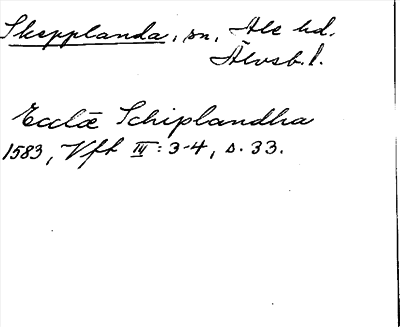 Skepplanda, sn, Ale hd.
Älvsb. l.
Ecclæ Schiplandha
1583, Vft III: 3-4, s. 33.